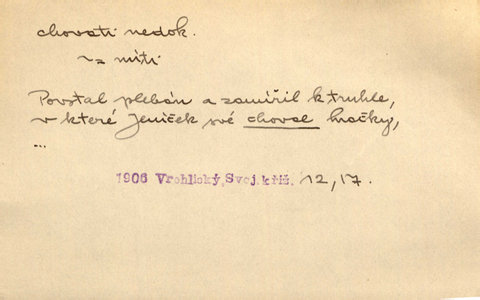 chovati nedok.
~ míti
Povstal plebán a zamířil k truhle,
v které Jeníček své choval hračky,
...
1906 Vrchlický, Svoj. kříž. 12, 17.